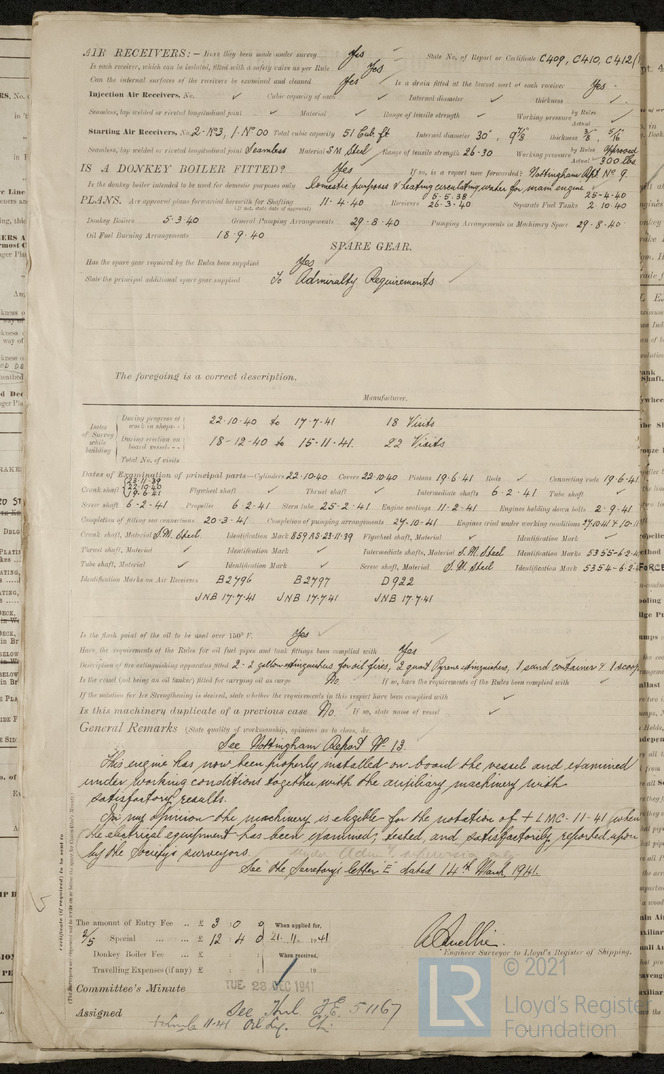 AIR RECEIVERS:— Have they been made under survey Yes State No. of Report or Certificate C409, C410, C412
Is each receiver, which can be isolated, fitted with a safety valve as per Rule Yes
Can the internal surfaces of the receivers be examined and cleaned Yes Is a drain fitted at the lowest part of each receiver Yes
Injection Air Receivers, No. ✓ Cubic capacity of each ✓ Internal diameter ✓ thickness ✓
Seamless, lap welded or riveted longitudinal joint ✓ Material ✓ Range of tensile strength ✓ Working pressure by Rules Actual
Starting Air Receivers, No. 2-No3, 1-No00 Total cubic capacity 51 Cub. ft Internal diameter 30", 9 7/8 thickness 3/8, 5/16
Seamless, lap welded or riveted longitudinal joint Seamless Material S.M. Steel Range of tensile strength 26-30 Working pressure by Rules Approved Actual 300 lbs
IS A DONKEY BOILER FITTED? Yes If so, is a report now forwarded? Nottingham Rpt. No 9.
Is the donkey boiler intended to be used for domestic purposes only Domestic purposes & heating circulating water for main engine
PLANS. Are approved plans forwarded herewith for Shafting 11-4-40 Receivers 6-5-38 26-3-40 Separate Fuel Tanks 25-4-40 2 10-40
(If not, state date of approval)
Donkey Boilers 5-3-40 General Pumping Arrangements 29-8-40 Pumping Arrangements in Machinery Space 29-8-40
Oil Fuel Burning Arrangements 18-9-40
SPARE GEAR.
Has the spare gear required by the Rules been supplied Yes
State the principal additional spare gear supplied To Admiralty Requirements
The foregoing is a correct description,
Manufacturer.
Dates of Survey while building
During progress of work in shops 22-10-40 to 17-7-41 18 Visits
During erection on board vessel 18-12-40 to 15-11-41. 22 Visits
Total No. of visits
Dates of Examination of principal parts—Cylinders 22-10-40 Covers 22-10-40 Pistons 19-6-41 Rods ✓ Connecting rods 19-6-41
Crank shaft 23-11-39 22-10-40 19-6-41 Flywheel shaft ✓ Thrust shaft ✓ Intermediate shafts 6-2-41 Tube shaft ✓
Screw shaft 6-2-41 Propeller 6-2-41 Stern tube 25-2-41 Engine seatings 11-2-41 Engines holding down bolts 2-9-41
Completion of fitting sea connections 20-3-41 Completion of pumping arrangements 27-10-41 Engines tried under working conditions 27-10-41
Crank shaft, Material S.M. Steel Identification Mark 859 AS 23-11-39 Flywheel shaft, Material ✓ Identification Mark ✓
Thrust shaft, Material ✓ Identification Mark ✓ Intermediate shafts, Material S.M Steel Identification Marks 5355-6-2-4
Tube shaft, Material ✓ Identification Mark ✓ Screw shaft, Material S.M Steel Identification Mark 5354-6-2-
Identification Marks on Air Receivers B2796 B2797 D922
JNB 17-7-41 JNB 17-7-41 JNB 17-7-41
Is the flash point of the oil to be used over 150° F. Yes
Have the requirements of the Rules for oil fuel pipes and tank fittings been complied with Yes
Description of fire extinguishing apparatus fitted 2-2 gallon extinguishers for oil fires, 2 quart Pyrene extinguishers, 1 sand container & 1 scoop
Is the vessel (not being an oil tanker) fitted for carrying oil as cargo No If so, have the requirements of the Rules been complied with ✓
If the notation for Ice Strengthening is desired, state whether the requirements in this respect have been complied with ✓
Is this machinery duplicate of a previous case No. If so, state name of vessel ✓
General Remarks (State quality of workmanship, opinions as to class, &c.
See Nottingham Report No 13.
This engine has now been properly installed on board the vessel and examined
under working conditions together with the auxiliary machinery with
satisfactory results.
In my opinion the machinery is eligible for the notation of + LMC-11-41 when
the electrical equipment has been examined, tested, and satisfactorily reported upon
by the Society's surveyors.
See the Secretary's letter "E" dated 14th March 1941.
The amount of Entry Fee .. £ 3 0 0 When applied for,
2/5 Special ... ... £ 12 4 0 21. 11. 1941
Donkey Boiler Fee ... £ : : When received,
Travelling Expenses (if any) £ : : 19
Engineer Surveyor to Lloyd's Register of Shipping.
Committee's Minute TUE 23 DEC 1941
Assigned See Hul F.E. 51167
11-41 Oil Eng. CL.
© 2021
LR
Lloyd's Register
Foundation